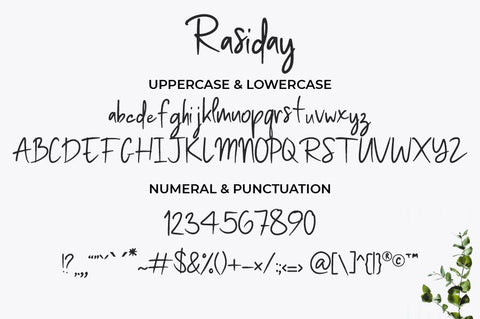 Rasiday
UPPERCASE & LOWERCASE
abcdefghijklmnopqrstuvwxyz
ABCDEFGHIJKLMNOPQRSTUVWXYZ
NUMERAL & PUNCTUATION
1234567890
!?.,„“”˝`´*~#$&%()+-×/:;<=> @[\]^{|}®©™